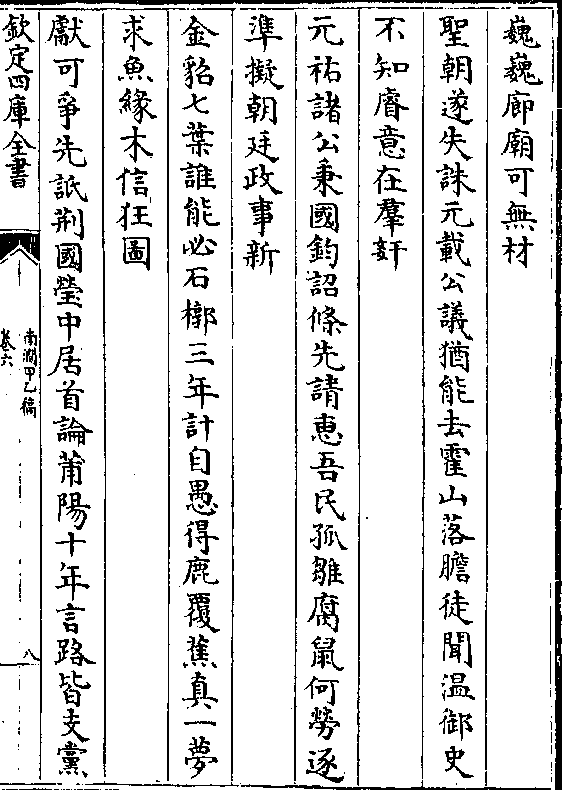 巍巍廊廟可無材
聖朝遂失誅元載公議猶能去霍山落膽徒聞温御史
不知睿意在羣姧
元祐諸公秉國鈞詔條先請惠吾民孤雛腐鼠何勞逐
準擬朝廷政事新
金貂七葉誰能必石槨三年計自愚得鹿覆蕉真一夢
求魚緣木信狂圖
獻可爭先詆荆國瑩中居首論莆陽十年言路皆支黨
欽定四庫全書
南澗甲乙稿
卷六
八